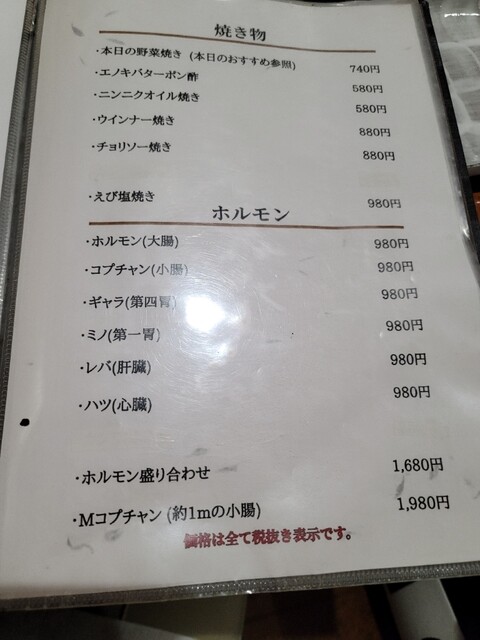 焼き物
・本日の野菜焼き (本日のおすすめ参照) 740円
・エノキバターポン酢 580円
・ニンニクオイル焼き 580円
・ウインナー焼き 880円
・チョリソー焼き 880円
・えび塩焼き 980円
ホルモン
・ホルモン(大腸) 980円
・コプチャン(小腸) 980円
・ギャラ(第四胃) 980円
・ミノ(第一胃) 980円
・レバ(肝臓) 980円
・ハツ(心臓) 980円
・ホルモン盛り合わせ 1,680円
・Mコプチャン (約1mの小腸) 1,980円
価格は全て税抜き表示です。